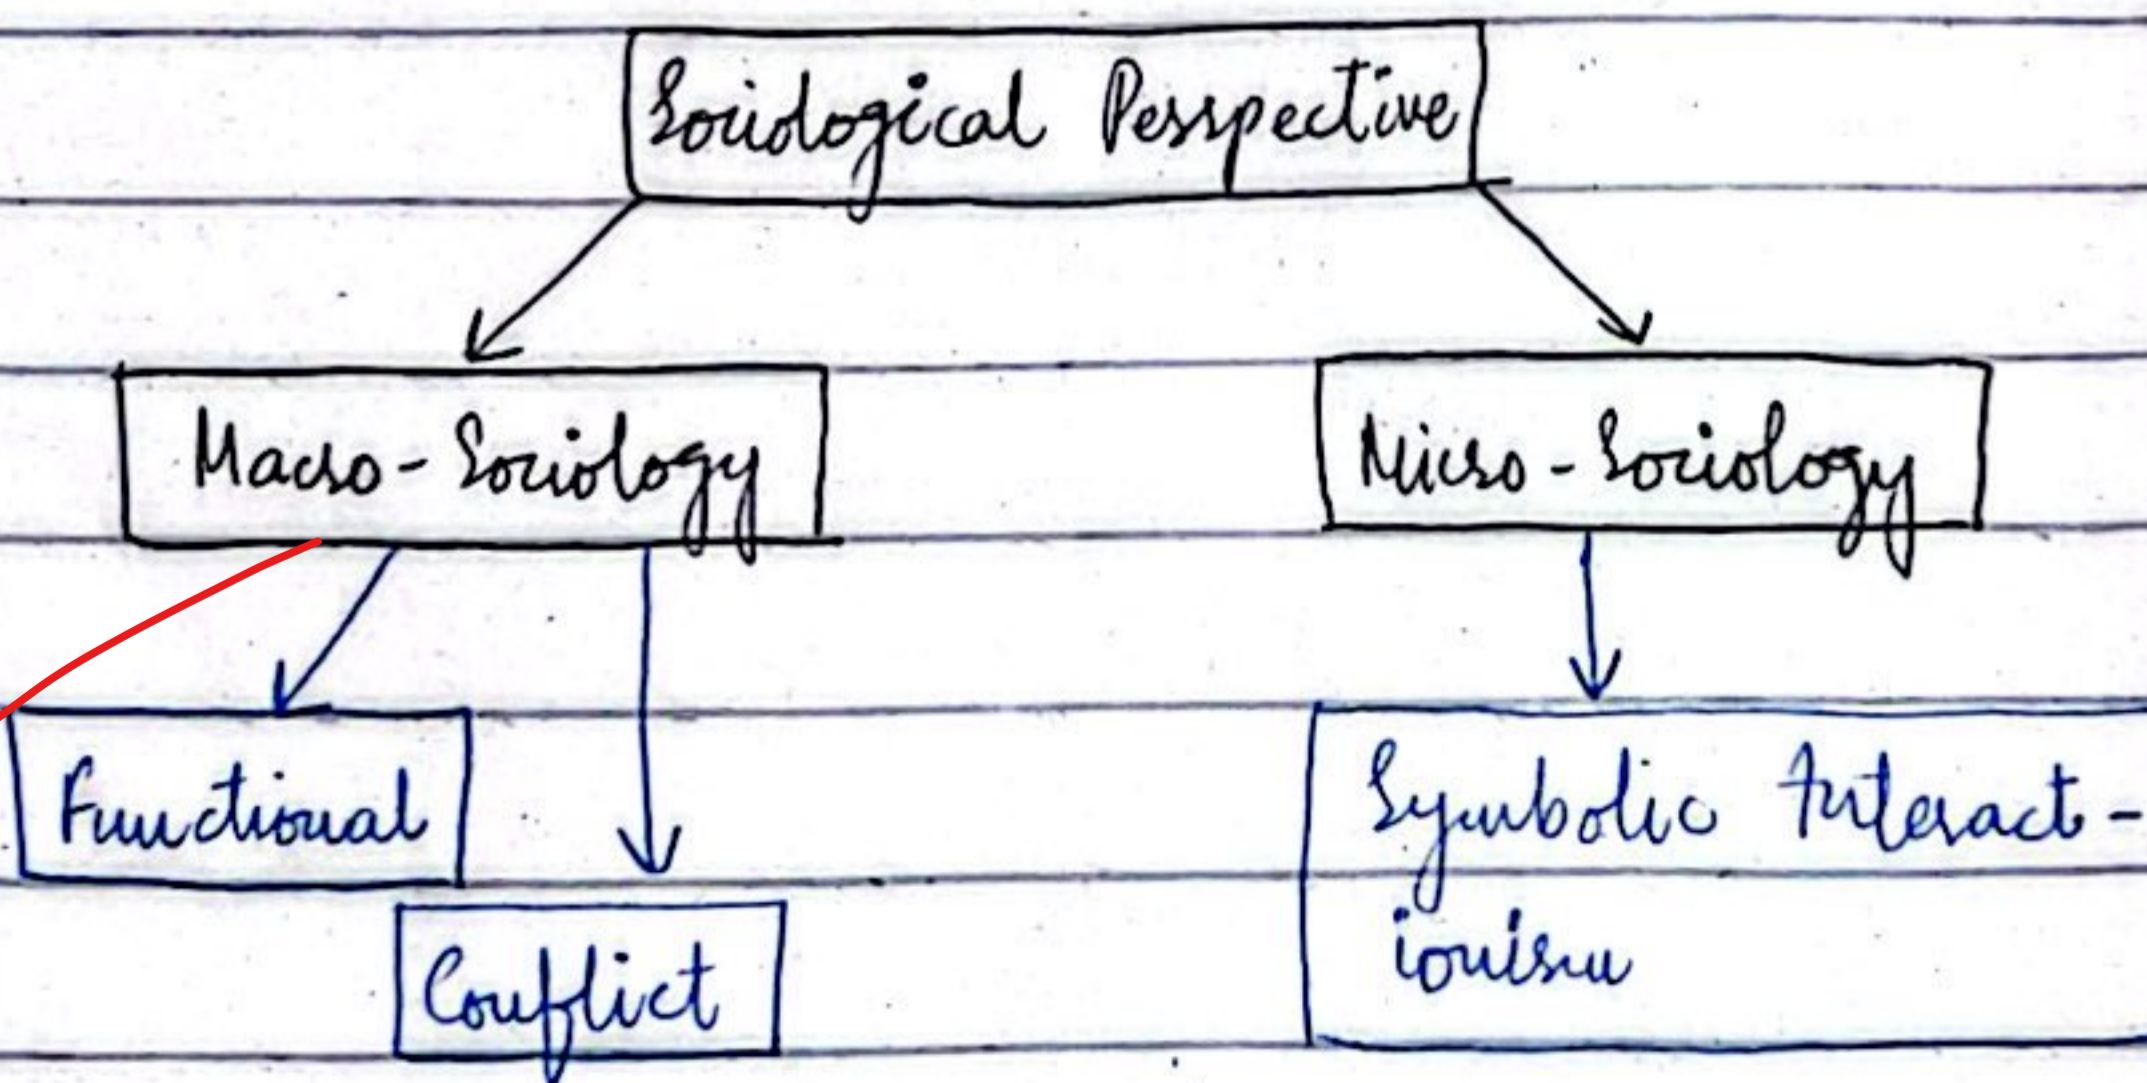 Sociological Perspective
Macro-Sociology
Micro-Sociology
Functional
Symbolic Interact-
ionism
Conflict